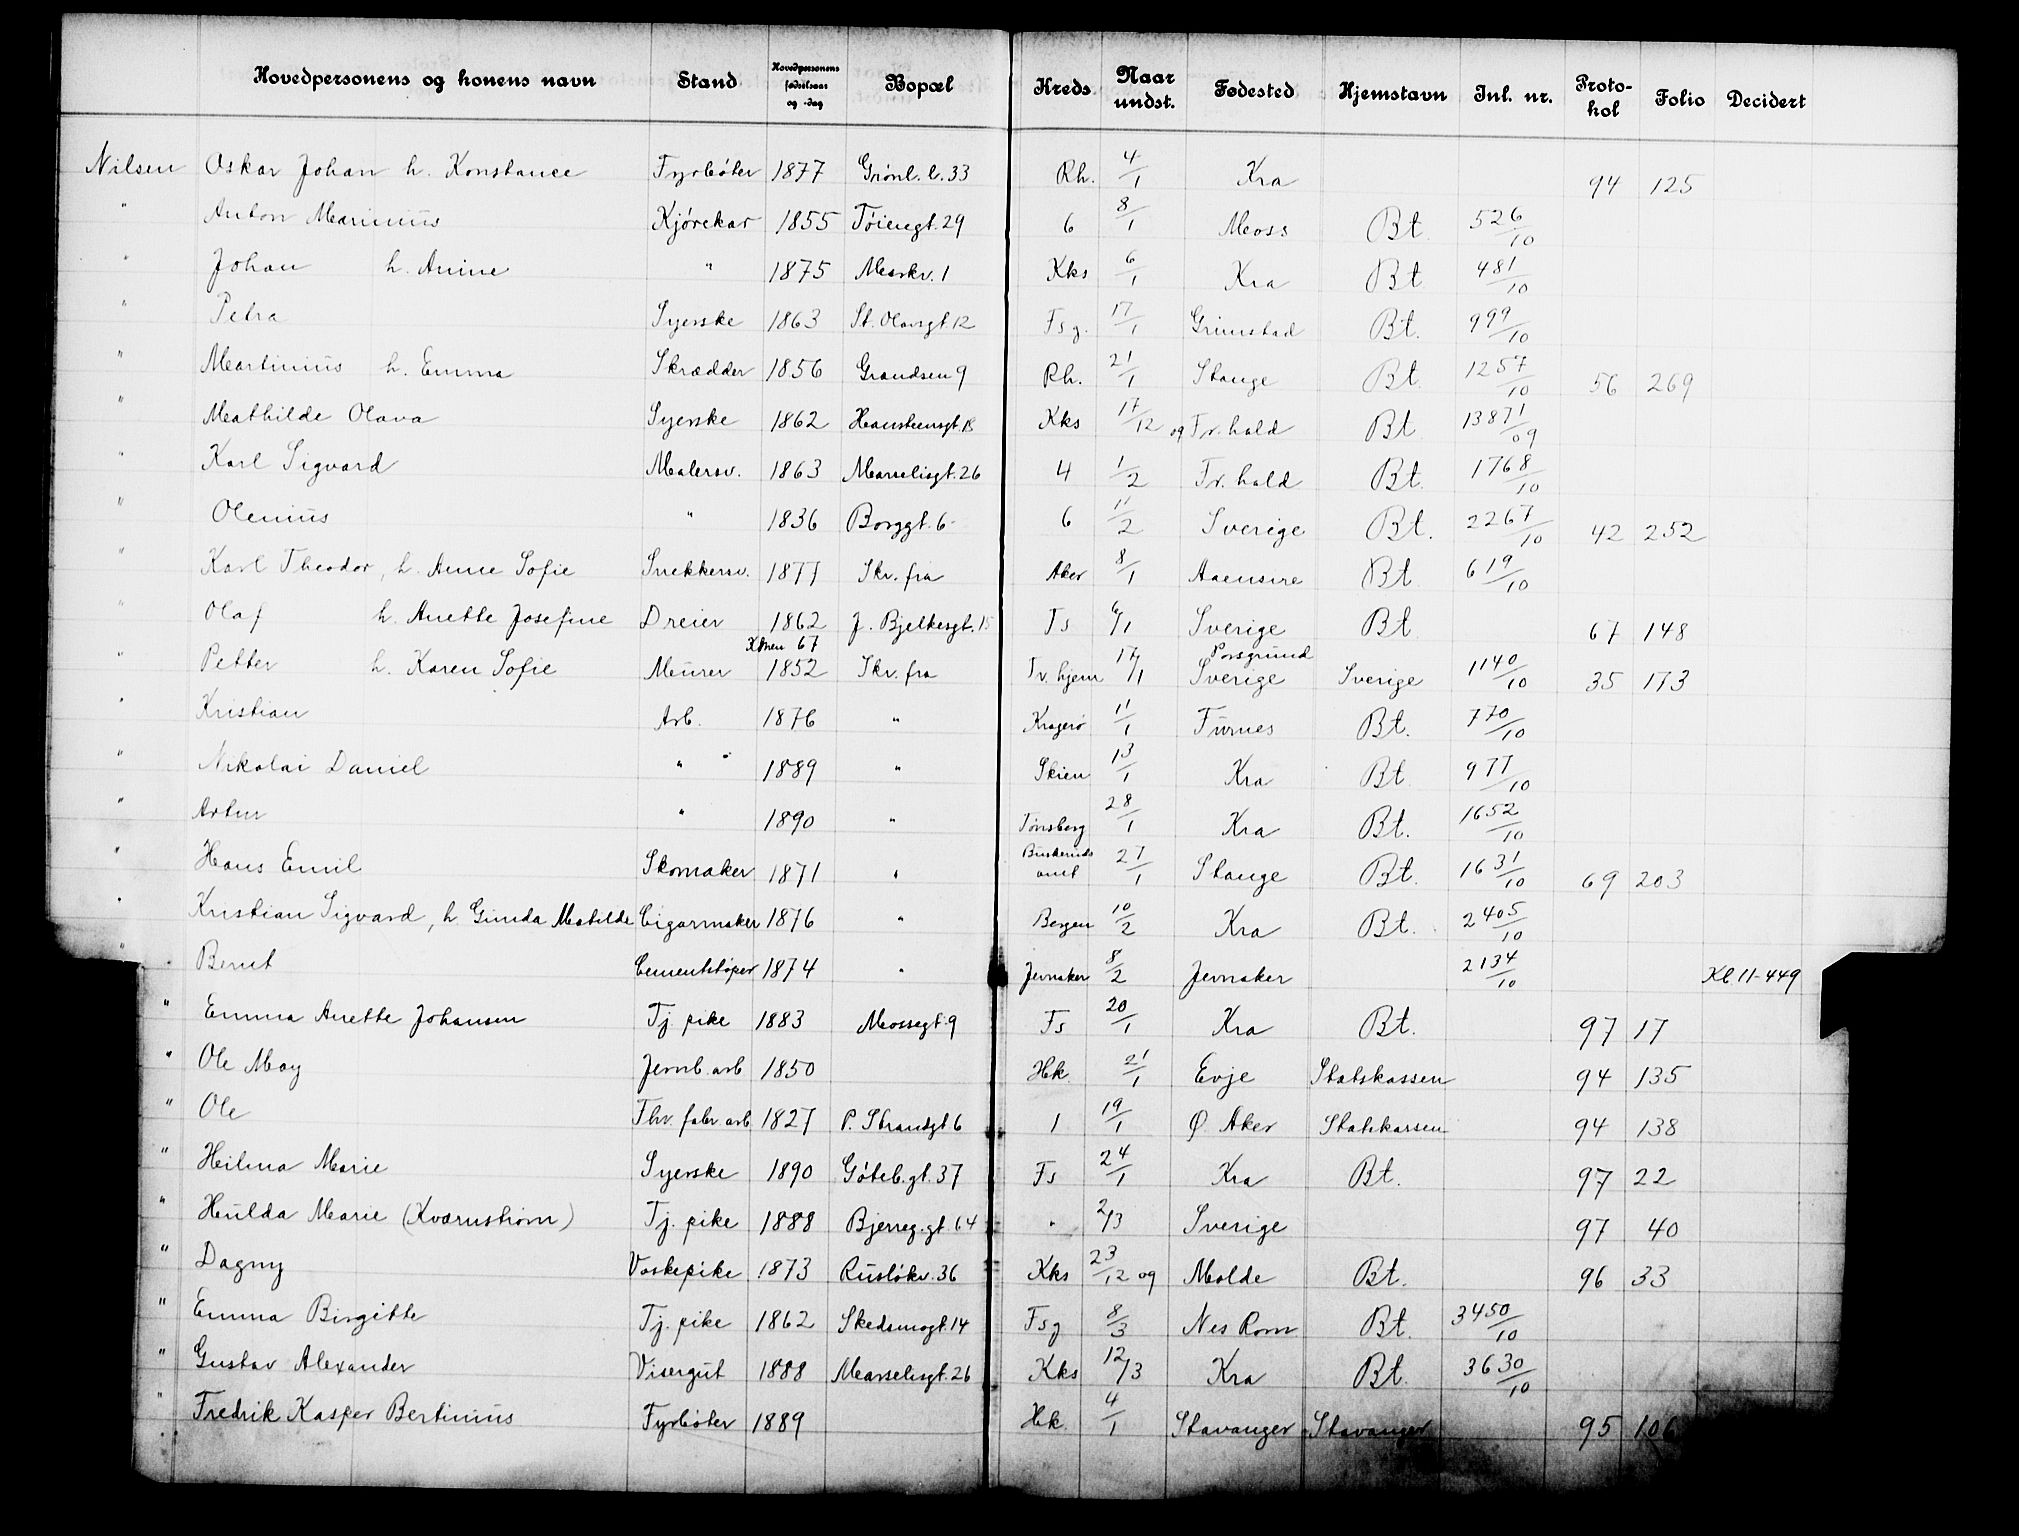 Hovedpersonens og konens navn Stand Hovedpersonens fødselsaar og -dag Bopæl Kreds Naar undst. Fødested Hjemstavn Inl. nr. Proto-kol Folio Decidert
Nilsen Oskar Johan h. Konstance Fyrbøter 1877 Grønl. l. 33 Rh. 4/1 Kra 94 125
" Anton Marinius Kjørekar 1855 Tøiengt. 29 6 8/1 Moss Bt. 526/10
" Johan h. Anine " 1875 Maskv. 1 Kks 6/1 Kra Bt 481/10
" Petra Syerske 1863 St. Olavsgt. 12 Fsg. 17/1 Grimstad Bt. 999/10
" Martinius h. Emma Skrædder 1856 Grændsen 9 Rh. 21/1 Stange Bt. 1257/10 56 269
" Mathilde Olava Syerske 1862 Hansteensgt. 18 Kks 17/12 09 Fr. hald Bt 13871/09
" Karl Sigvard Malersv. 1863 Marselisgt. 26 4 1/2 Fr. hald Bt. 1768/10
" Olenius " 1836 Borggt. 6 6 11/2 Sverige Bt. 2267/10 42 252
" Karl Theodor, h. Anne Sofie Snekkersv. 1877 Skr. fra Aker 8/1 Aaensire Bt 619/10
" Olaf h. Anette Josefine Dreier 1862 J. Bjelkesgt. 15 Fs 6/1 Sverige Bt 67 148
Konen 67 Porsgrund
" Petter h. Karen Sofie Murer 1852 Skr. fra Tv. hjem 17/1 Sverige Sverige 1140/10 35 173
" Kristian Arb. 1876 " Kragerø 11/1 Furnes Bt. 770/10
" Nikolai Daniel " 1889 " Skien 13/1 Kra Bt 977/10
" Artur " 1890 " Tønsberg 28/1 Kra Bt. 1652/10
" Hans Emil Skomaker 1871 " Buskeruds amt 27/1 Stange Bt. 1631/10 69 203
" Kristian Sigvard, h. Ginda Matilde Cigarmaker 1876 " Bergen 10/2 Kra Bt. 2405/10
" Bernt Cementstøper 1874 " Jevnaker 8/2 Jevnaker 2134/10 Kl. 11-449
" Emma Anette Johansen Tj. pike 1883 Mossegt. 9 Fs 20/1 Kra Bt. 97 17
" Ole May Jernb. arb 1850 Hk. 21/1 Evje Statskassen 94 135
" Ole Thv. fabr. arb 1827 P. Strandgt 6 1 19/1 Ø. Aker Statskassen 94 138
" Hilma Marie Syerske 1890 Gøteb. gt. 37 Fs 24/1 Kra Bt. 97 22
" Hulda Marie (Kvarnstrøm) Tj. pike 1888 Bjerreg. gt. 64 " 2/3 Sverige 97 40
" Dagny Vaskepike 1873 Rusløkv. 36 Kks 23/12 09 Molde Bt. 96 33
" Emma Birgitte Tj. pike 1862 Skedsmogt. 14 Fsg 8/3 Nes Rom Bt. 3450/10
" Gustav Alexander Visergut 1888 Marselisgt. 26 Kks 12/3 Kra Bt. 3630/10
" Fredrik Kasper Bertinius Fyrbøter 1889 Hk. 4/1 Stavanger Stavanger 95 106